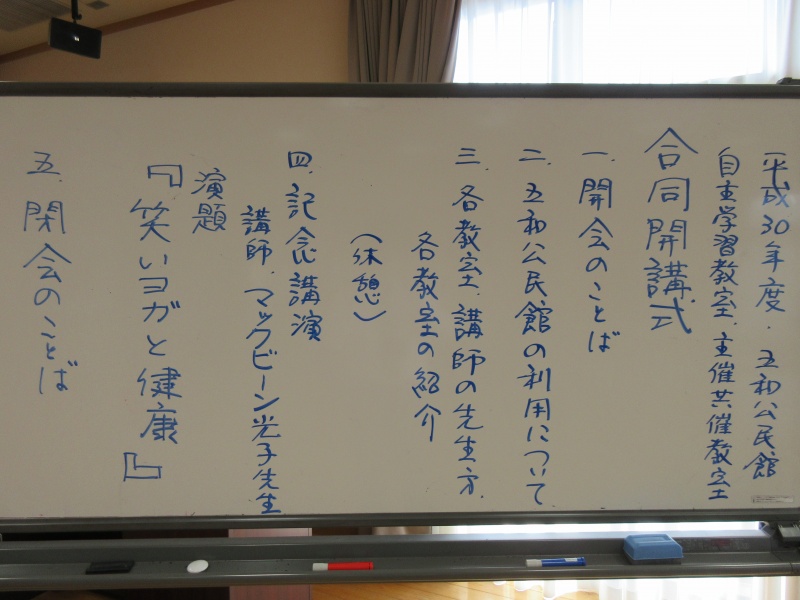 平成30年度.五和公民館
自主学習教室.主催共催教室
合同開講式
一.開会のことば
二.五和公民館の利用について
三.各教室.講師の先生方.
各教室の紹介
(休憩)
四.記念講演
講師.マックビーン光子先生
演題
『笑いヨガと健康』
五.閉会のことば